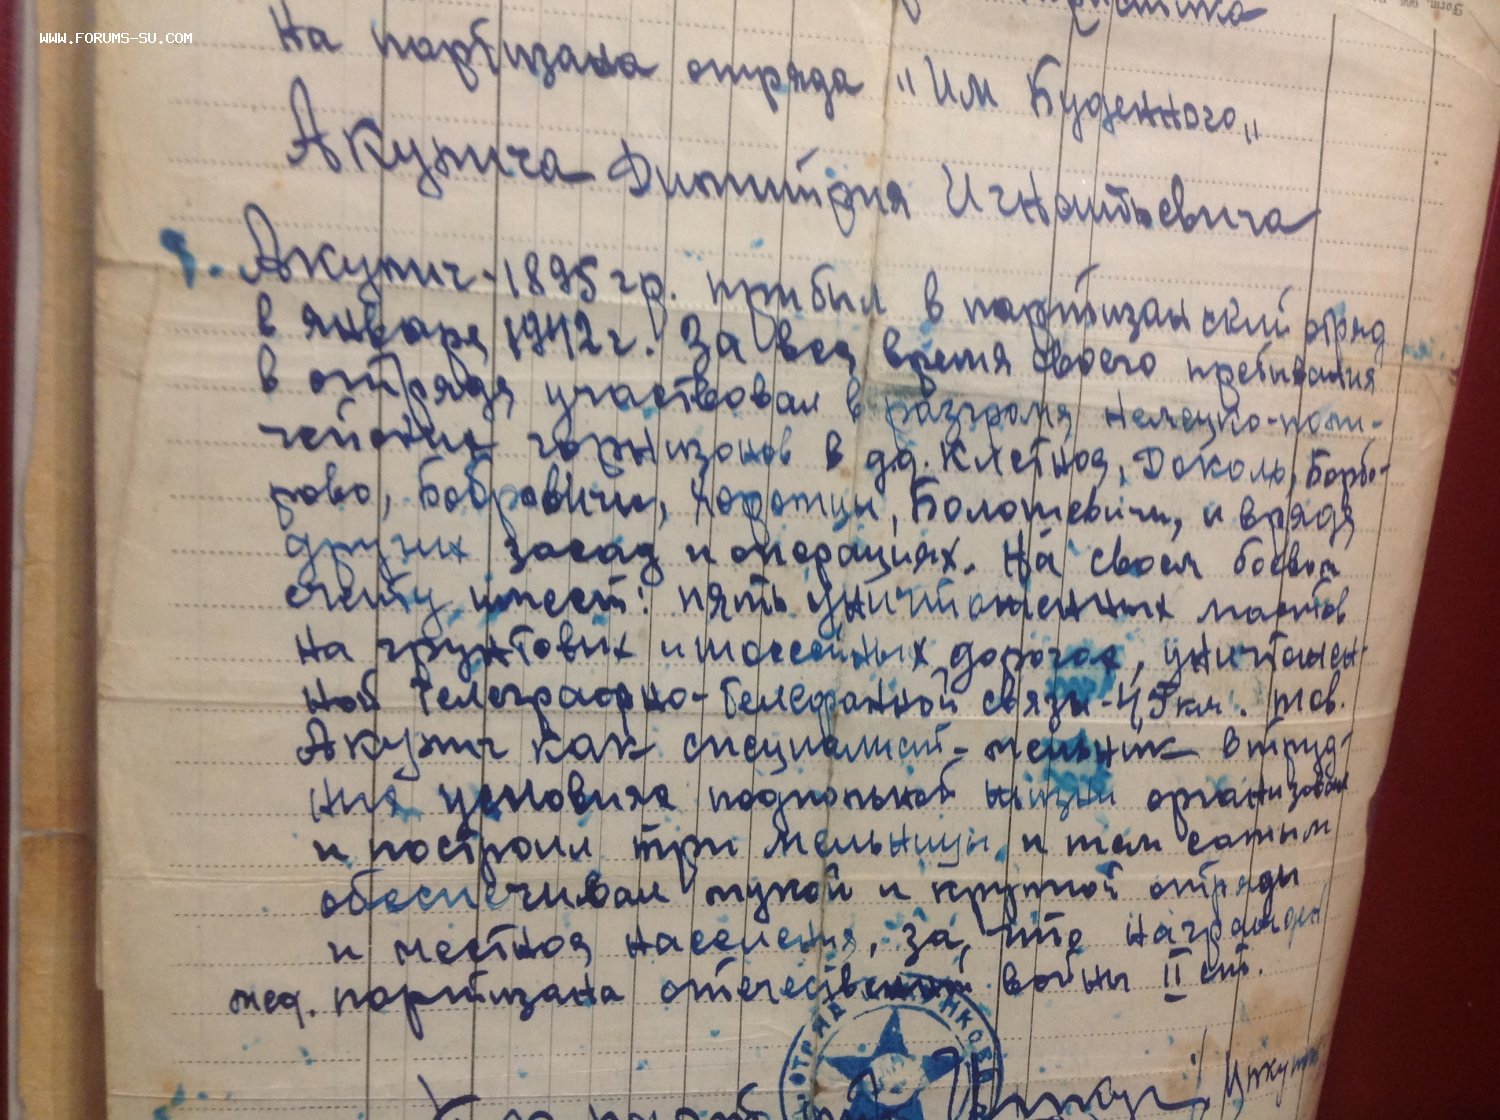 WWW.FORUMS-SU.COM
На партизана отряда "Им Буденного"
Акулича Дмитрия Игнатьевича
Акулич - 1895 г.р. прибыл в партизанский отряд
в январе 1942 г. За все время своего пребывания
в отряде участвовал в разгроме немецко-поли-
чейских горнизонов в дд. Клетное, Доколь, Барбо-
рово, Бобровичи, Хоромцы, Болошевичи, и в ряде
других засад и операциях. На своем боевом
счету имеет: пять уничтоженных мостов
на грунтовых и шоссейных дорогах, уничтожен-
ной телеграфно-телефонной связи - 4,5 км. тов.
Акулич как специалист - мельник в труд-
ных условиях подпольной жизни организовал
и построил три мельницы и тем самым
обеспечивал мукой и крупой отряды
и местное население, за что награжден
мед. партизана отечественной войны II ст.
ОТРЯД